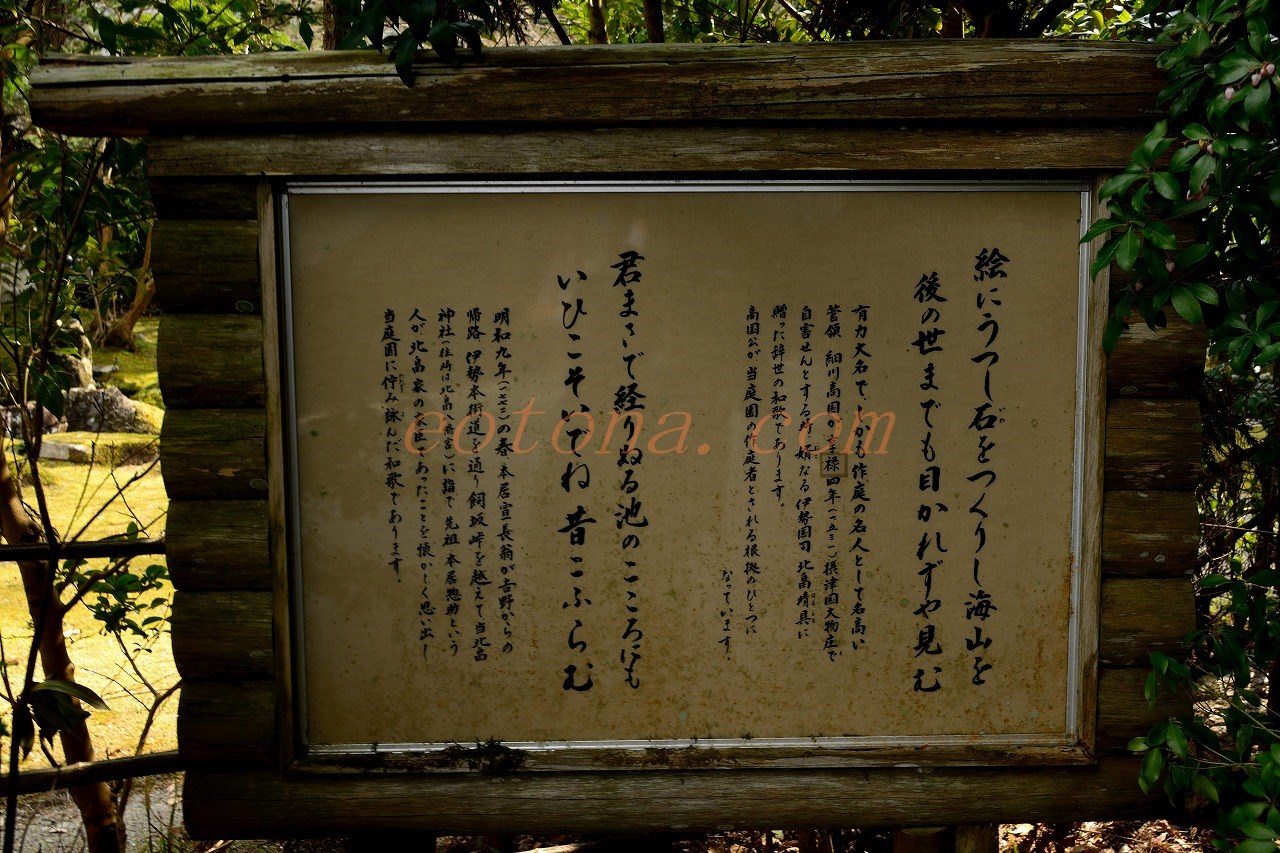 絵にうつし石をつくりし海山を
後の世までも目かれずや見む
有力大名で、しかも作庭の名人として名高い
管領 細川高国が享禄四年(一五三一)摂津国大物庄で
自害せんとする時、婿なる伊勢国司 北畠晴具に
贈った辞世の和歌であります。
高国公が当庭園の作庭者とされる根拠のひとつに
なっています。
君まさで経りぬる池のこころにも
いひこそいでね昔こふらむ
明和九年(一七七二)の春、本居宣長翁が吉野からの
帰路、伊勢本街道を通り飼坂峠を越えて当北畠
神社(往時は北畠八幡宮)に詣で、先祖 本居惣助という
人が、北畠家の家臣であったことを懐かしく思い出し
当庭園に佇み詠んだ和歌であります。
eotona.com